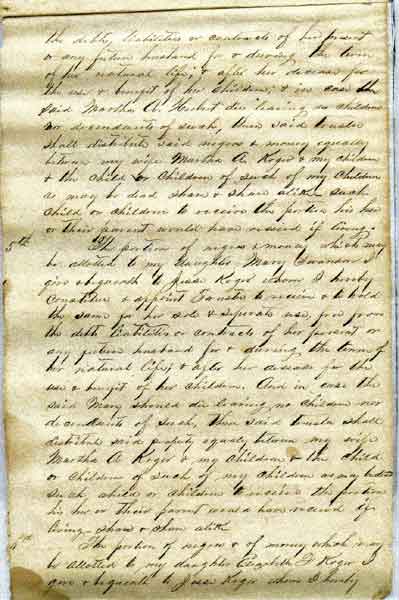 the debts, liabilities or contracts of her present
or any future husband for & during the term
of her natural life, & after her decease for
the use & benefit of her children, & in case the
said Martha A. Herbert die leaving no children
nor descendants of such, then said trustee
shall distribute said negroes & money equally
between my wife Martha A Koger & my children
& the child or Children of such of my Children
as may be dead share & share alike such
Child or children to receive the portion his her
or their parent would have received if living.
5th The portion of negroes & money which may
be allotted to my daughter Mary I
give & bequeath to Jesse Koger whom I hereby
Constitute & appoint Trustee to receive & to hold
the same for her sole & seperate use, free from
the debts liabilities or contracts of her present or
any future husband for & during the term of
her natural life, & after her decease for the
use & benefit of her children. And in case the
said Mary should die leaving no children nor
descendants of such, then said trustee shall
distribute said property equally between my wife
Martha A Koger & my children & the child
or children of such of my children as may be dead
such child or children to receive the portion
his her or their parent would have received if
living share & share alike
The portion of negroes & of money which may
be allotted to my daughter Elizabeth F Koger I
give & bequeath to Jesse Koger whom I hereby